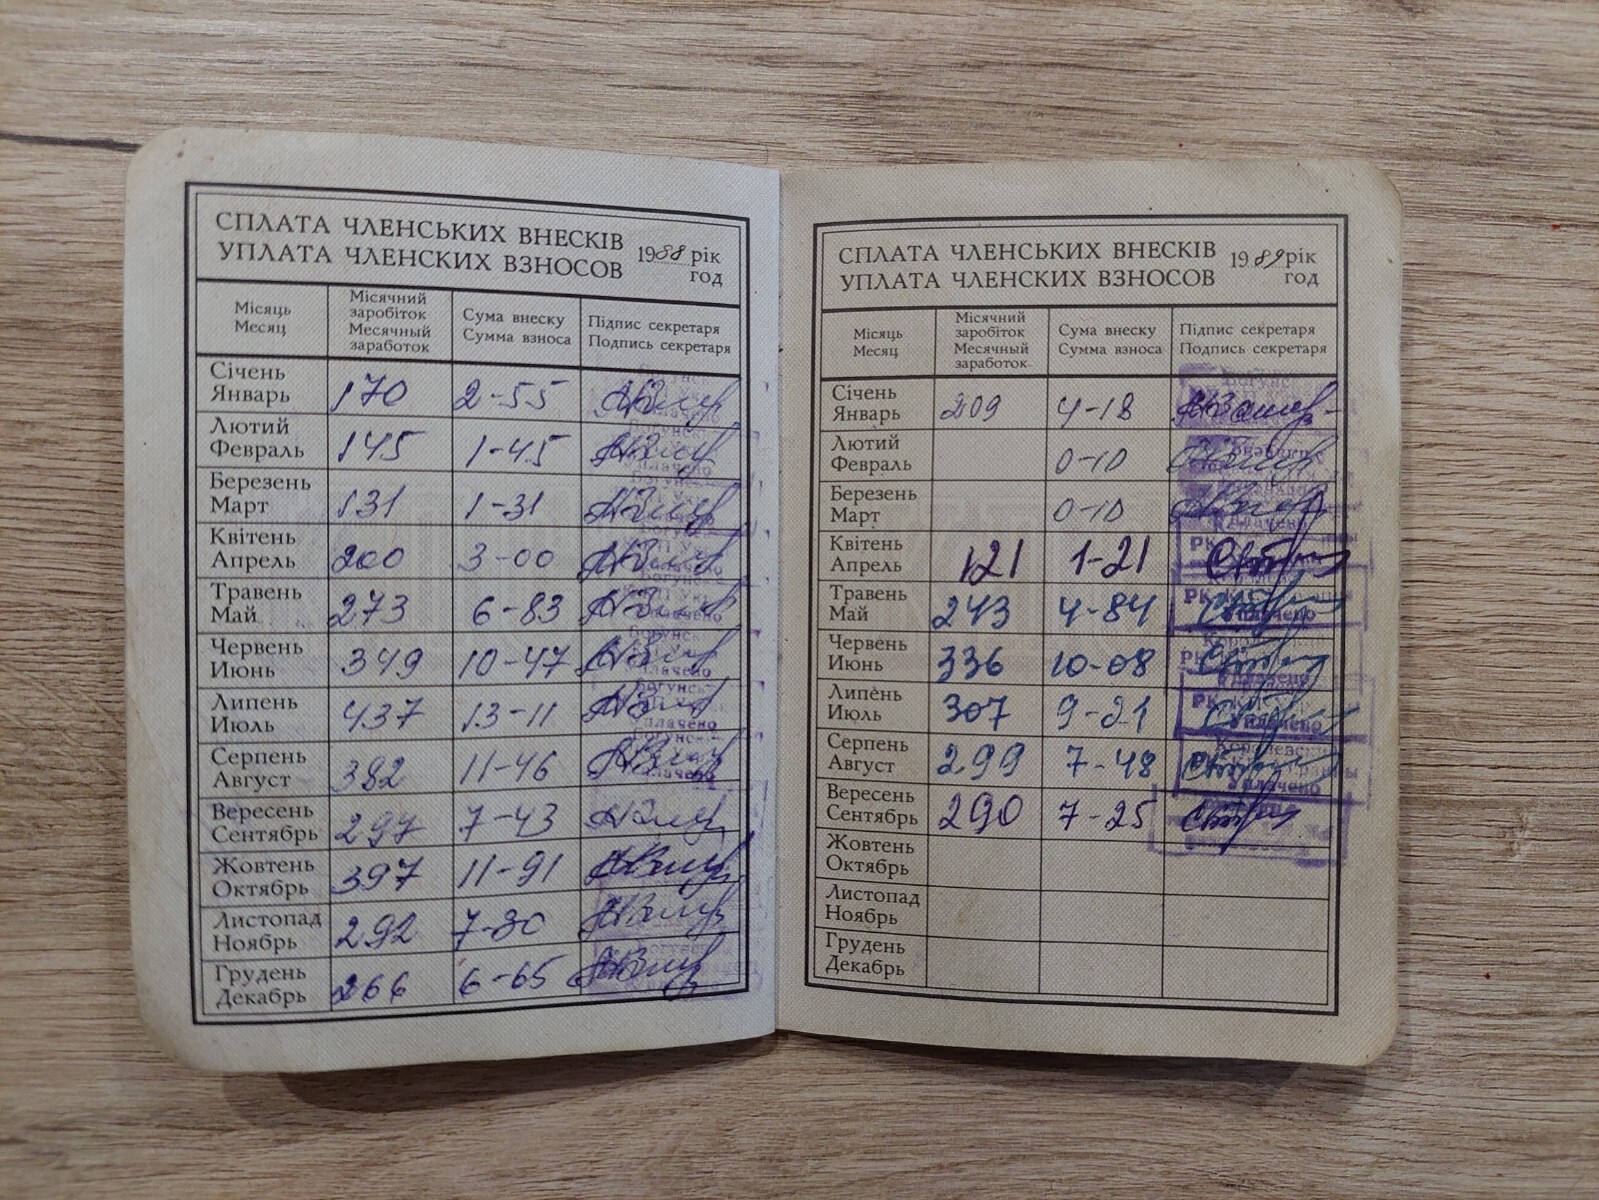 СПЛАТА ЧЛЕНСЬКИХ ВНЕСКІВ
УПЛАТА ЧЛЕНСКИХ ВЗНОСОВ
1988 рік
год
Місяць
Месяц
Місячний
заробіток
Месячный
заработок
Сума внеску
Сумма взноса
Підпис секретаря
Подпись секретаря
Січень
Январь 170 2-55
Лютий
Февраль 145 1-45
Уплачено
Березень
Март 131 1-31
Квітень
Апрель 200 3-00
Травень
Май 273 6-83
Червень
Июнь 349 10-47
Липень
Июль 437 13-11
Уплачено
Серпень
Август 382 11-46
Вересень
Сентябрь 297 7-43
Жовтень
Октябрь 397 11-91
Листопад
Ноябрь 292 7-30
Грудень
Декабрь 266 6-65
СПЛАТА ЧЛЕНСЬКИХ ВНЕСКІВ
УПЛАТА ЧЛЕНСКИХ ВЗНОСОВ
1989 рік
год
Місяць
Месяц
Місячний
заробіток
Месячный
заработок
Сума внеску
Сумма взноса
Підпис секретаря
Подпись секретаря
Січень
Январь 209 4-18
Лютий
Февраль 0-10
Березень
Март 0-10
Квітень
Апрель 121 1-21
РК
Травень
Май 243 4-84
РК
Червень
Июнь 336 10-08
РК
Липень
Июль 307 9-21
РК
Уплачено
Серпень
Август 299 7-48
Уплачено
Вересень
Сентябрь 290 7-25
Жовтень
Октябрь
Листопад
Ноябрь
Грудень
Декабрь